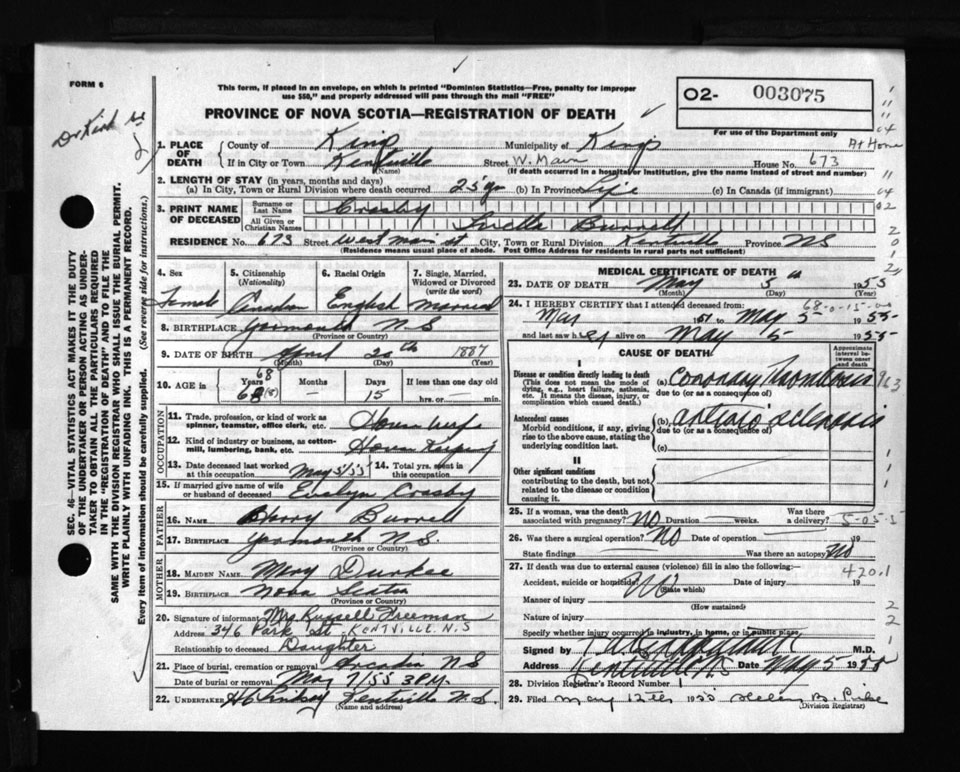 FORM 6
This form, if placed in an envelope, on which is printed "Dominion Statistics—Free, penalty for improper
use $50," and properly addressed will pass through the mail "FREE"
PROVINCE OF NOVA SCOTIA—REGISTRATION OF DEATH
02- 003075
For use of the Department only
At Home
1. PLACE OF DEATH
County of Kings Municipality of Kings
If in City or Town Kentville (Name) Street W. Main House No. 673
(If death occurred in a hospital or institution, give the name instead of street and number)
2. LENGTH OF STAY (in years, months and days)
(a) In City, Town or Rural Division where death occurred 25 yr (b) In Province Life (c) In Canada (if immigrant)
3. PRINT NAME OF DECEASED
Surname or Last Name Crosby
All Given or Christian Names Burrell
RESIDENCE No. 673 Street West Main St City, Town or Rural Division Kentville Province NS
(Residence means usual place of abode. Post Office Address for residents in rural parts not sufficient)
SEC. 46—VITAL STATISTICS ACT MAKES IT THE DUTY
OF THE UNDERTAKER OR PERSON ACTING AS UNDERTAKER
TO OBTAIN ALL THE PARTICULARS REQUIRED
IN THE "REGISTRATION OF DEATH" AND TO FILE THE
SAME WITH THE DIVISION REGISTRAR WHO SHALL ISSUE THE BURIAL PERMIT.
WRITE PLAINLY WITH UNFADING INK. THIS IS A PERMANENT RECORD.
Every item of information should be carefully supplied. (See reverse side for instructions.)
4. Sex Female
5. Citizenship (Nationality) Canadian
6. Racial Origin English
7. Single, Married, Widowed or Divorced (write the word) Married
8. BIRTHPLACE Yarmouth N.S
(Province or Country)
9. DATE OF BIRTH April 20th 1887
(Month) (Day) (Year)
10. AGE in 68 Years — Months 15 Days If less than one day old
hrs. or min.
OCCUPATION
11. Trade, profession, or kind of work as spinner, teamster, office clerk, etc. House wife
12. Kind of industry or business, as cotton-mill, lumbering, bank, etc. House Keeping
13. Date deceased last worked at this occupation May 5/55 14. Total yrs. spent in this occupation
15. If married give name of wife or husband of deceased Evelyn Crosby
FATHER
16. NAME Harry Burrell
17. BIRTHPLACE Yarmouth N.S.
(Province or Country)
MOTHER
18. MAIDEN NAME Mery Durkee
19. BIRTHPLACE Nova Scotia
(Province or Country)
20. Signature of informant Mrs Russell Freeman
Address 346 Park St. KENTVILLE N.S
Relationship to deceased Daughter
21. Place of burial, cremation or removal Arcadia N S
Date of burial or removal May 7/55 3 P.M.
22. UNDERTAKER Kentville N.S.
(Name and address)
MEDICAL CERTIFICATE OF DEATH
23. DATE OF DEATH May 5 1955
(Month) (Day) (Year)
24. I HEREBY CERTIFY that I attended deceased from:
68-0-15-00
May 1951 to May 5 1955
and last saw her alive on May 5 1955
CAUSE OF DEATH
Approximate interval between onset and death
I
Disease or condition directly leading to death
(This does not mean the mode of dying, e.g., heart failure, asthenia, etc. It means the disease, injury, or complication which caused death.)
(a) Coronary Thrombosis
due to (or as a consequence of)
Antecedent causes
Morbid conditions, if any, giving rise to the above cause, stating the underlying condition last.
(b) arterio sclerosis
due to (or as a consequence of)
(c)
II
Other significant conditions
contributing to the death, but not related to the disease or condition causing it.
25. If a woman, was the death associated with pregnancy? NO Duration weeks. Was there a delivery? 5-05-5
26. Was there a surgical operation? NO Date of operation 19
State findings Was there an autopsy? NO
27. If death was due to external causes (violence) fill in also the following:— 420.1
Accident, suicide or homicide? (State which) Date of injury 19
Manner of injury
(How sustained)
Nature of injury
Specify whether injury occurred in industry, in home, or in public place
Signed by M.D.
Address Kentville N.S. Date May 5 1955
28. Division Registrar's Record Number 1
29. Filed May 12th 1955 Helen B.
(Division Registrar)